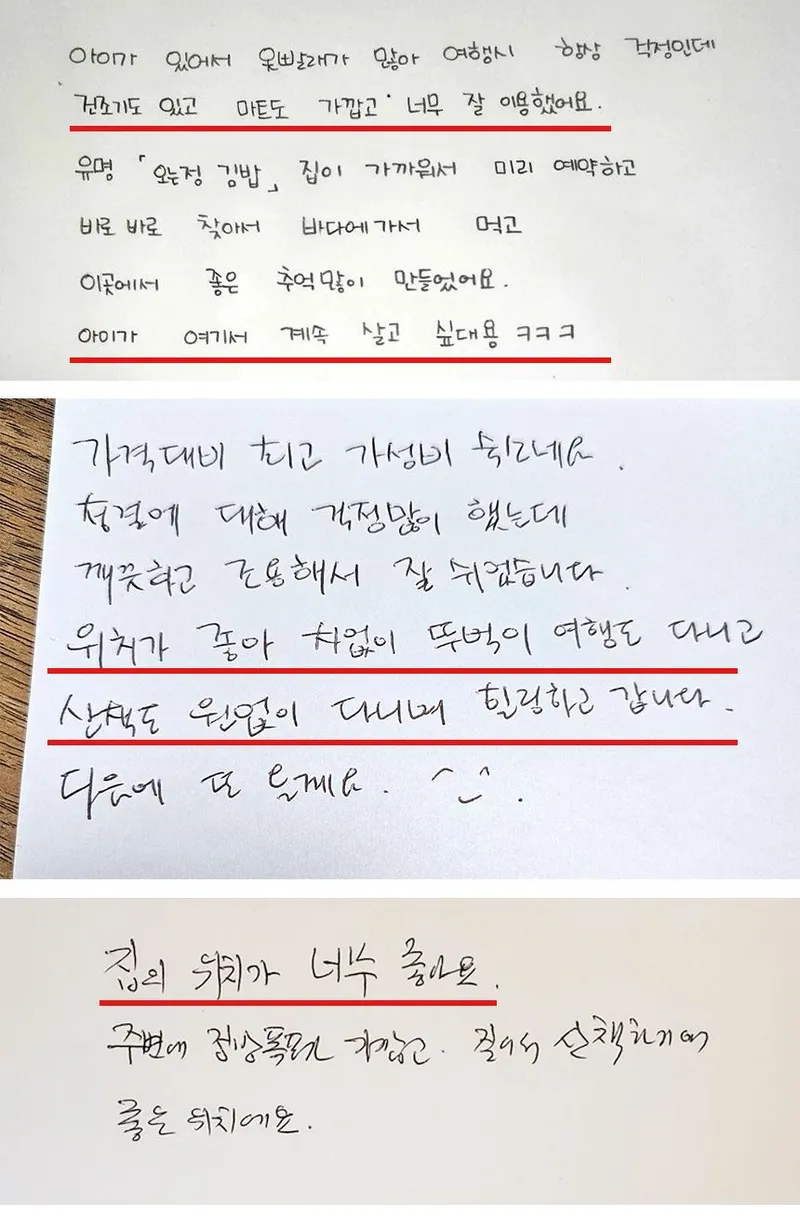 아이가 있어서 옷빨래가 많아 여행시 항상 걱정인데
건조기도 있고 마트도 가깝고 너무 잘 이용했어요.
유명 「오는정 김밥」 집이 가까워서 미리 예약하고
바로 바로 찾아서 바다에가서 먹고
이곳에서 좋은 추억많이 만들었어요.
아이가 여기서 계속 살고 싶대용 ㅋㅋㅋ
가격대비 최고 가성비 숙소네요.
청결에 대해 걱정많이 했는데
깨끗하고 조용해서 잘 쉬었습니다.
위치가 좋아 차없이 뚜벅이 여행도 다니고
산책도 원없이 다니며 힐링하고 갑니다.
다음에 또 올게요. ^_^.
집의 위치가 너무 좋아요.
주변에 정방폭포가 가깝고. 걸어서 산책하기에
좋은 위치에요.